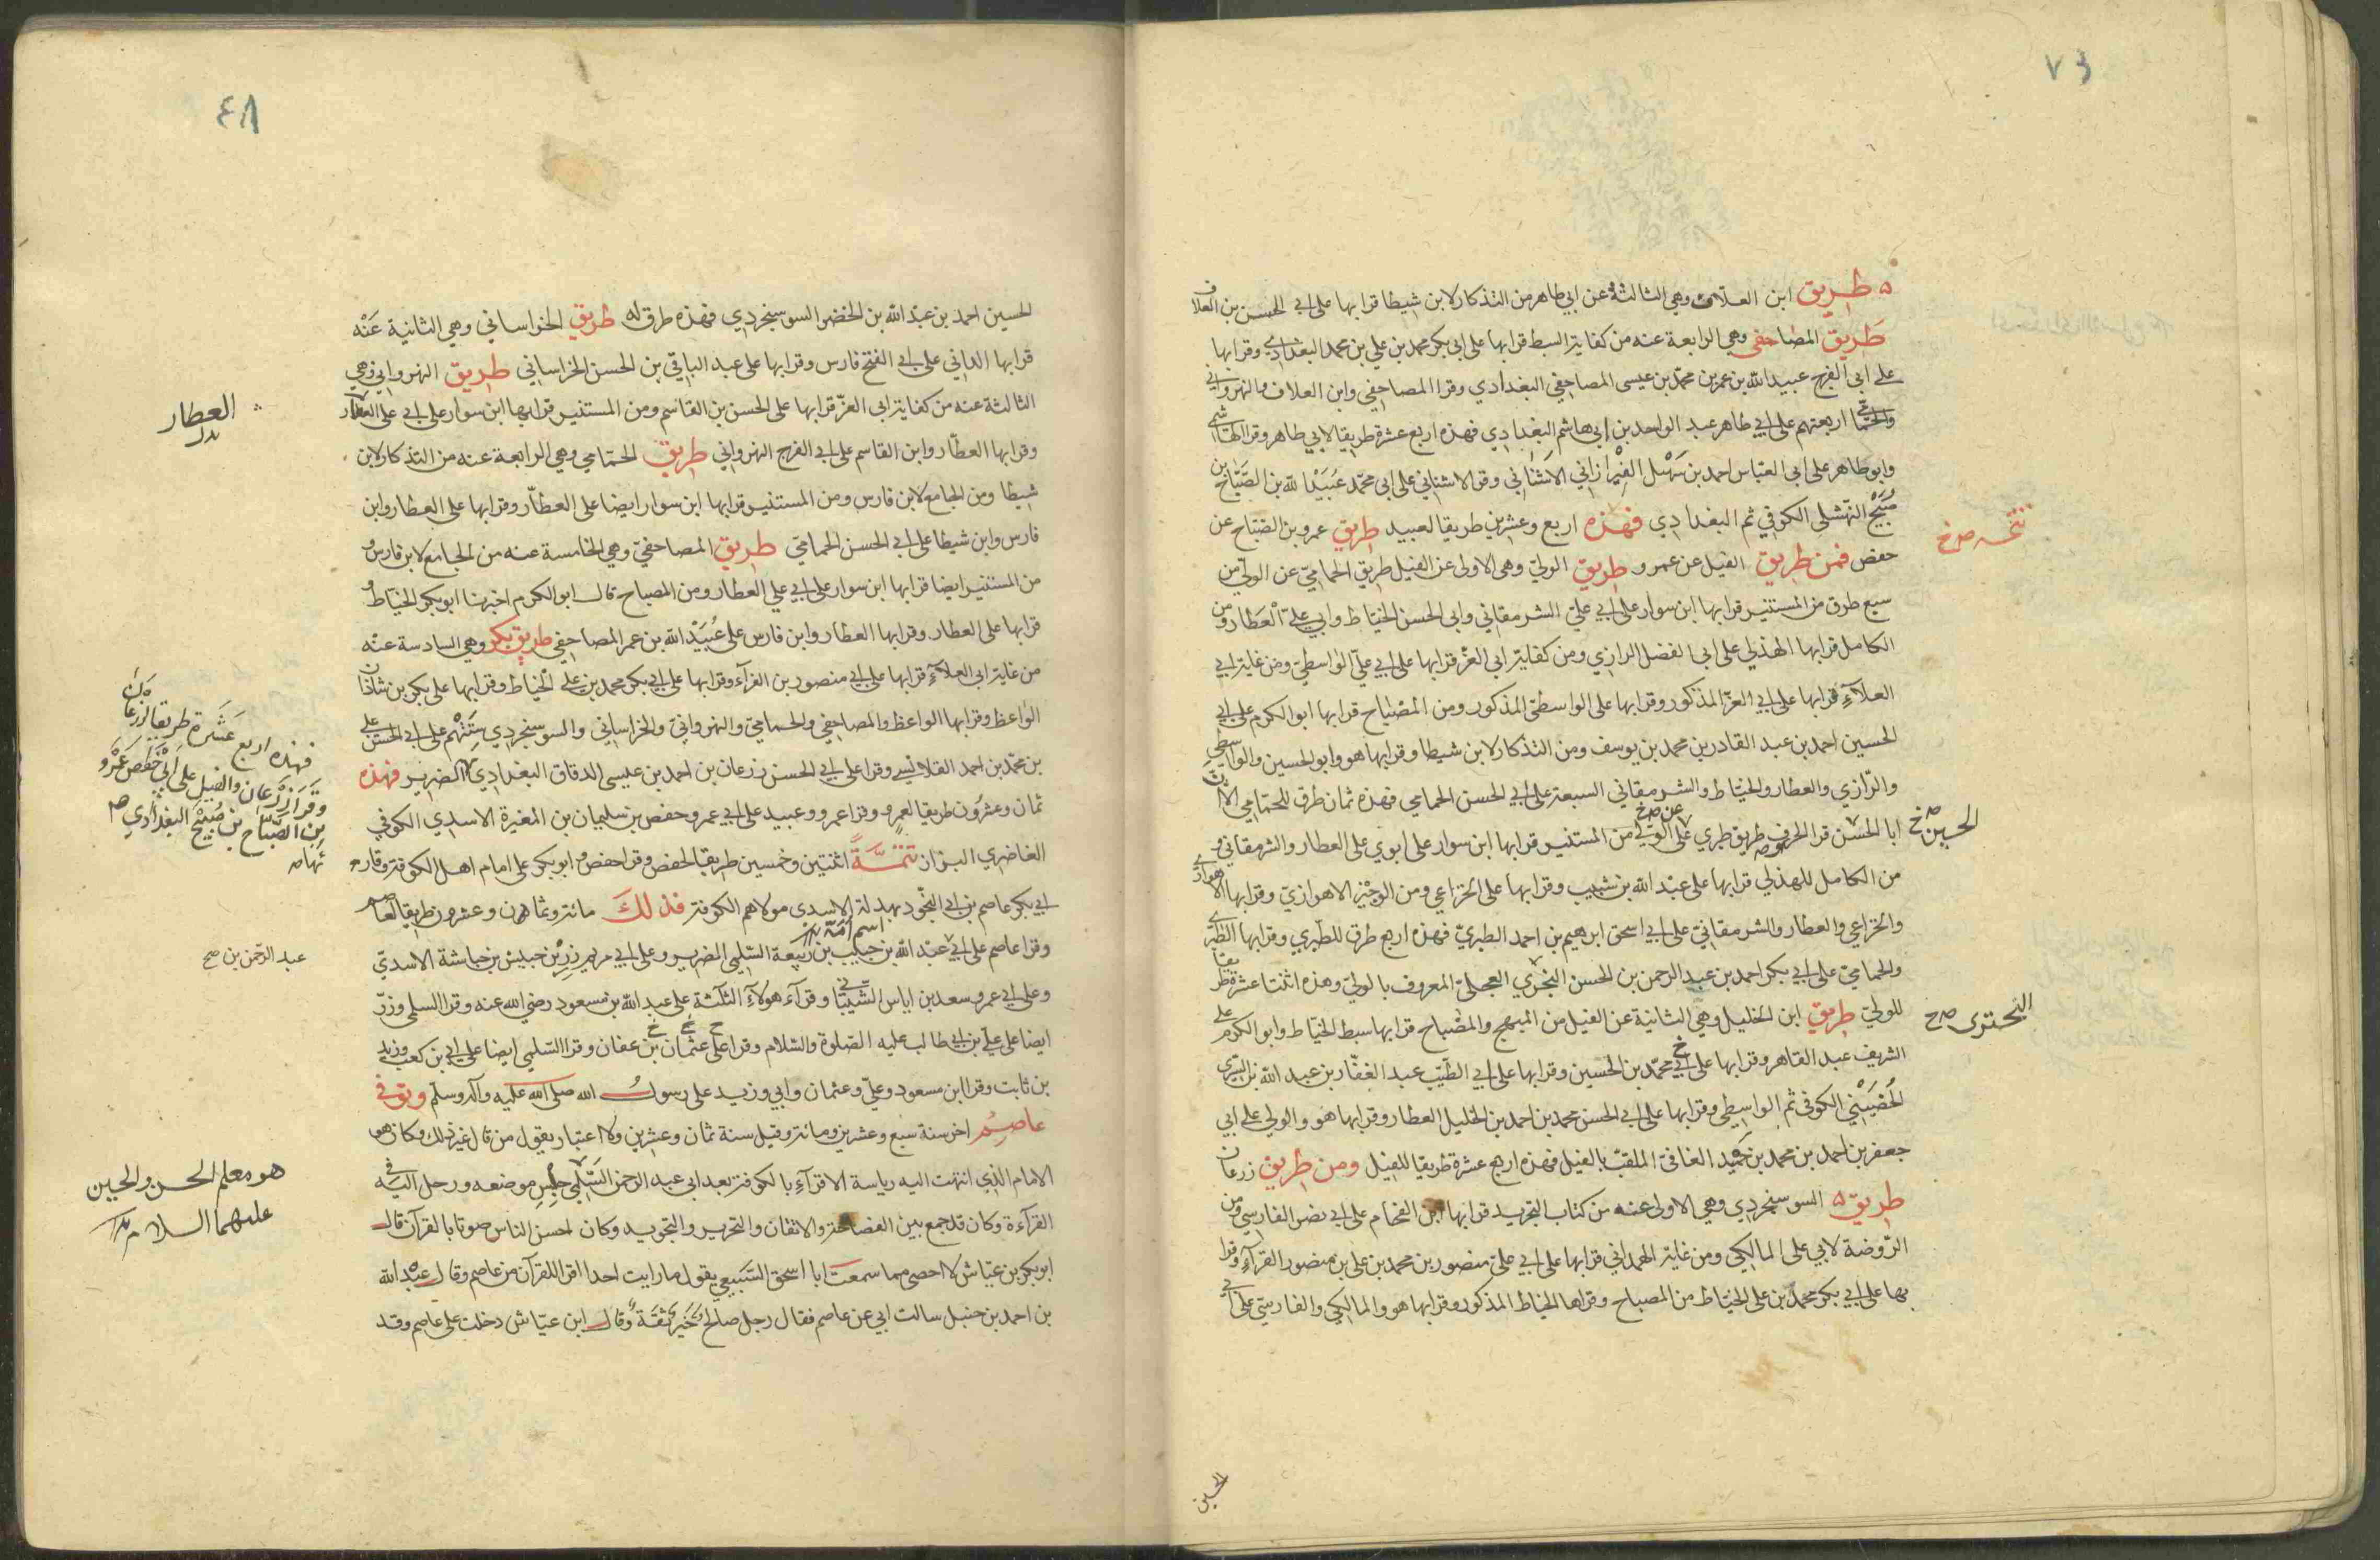 ٧٤
طريق ابن العلاف وهي الثالثة عن ابي طاهر من التذكار لابن شيطا قرا بها على ابي الحسن بن العلاف
طريق المصاحفي وهي الرابعة عنه من كفاية السبط قرا بها على ابى بكر محمد بن علي بن محمد البغدادي وقرا بها
على ابى الفرج عبيد الله بن عمر بن محمد بن عيسى المصاحفي البغدادي وقرا المصاحفي وابن العلاف والنهرواني
والحمامي اربعتهم على ابي طاهر عبد الواحد بن ابي هاشم البغدادي فهذه اربع عشرة طريقا لابي طاهر وقرا الهاشمي
وابو طاهر على ابى العباس احمد بن سهل الفيرازاني الاشناني وقرا الاشناني على ابى محمد عبيد الله بن الصباح بن
صبيح النهشلى الكوفي ثم البغدادي فهذه اربع وعشرين طريقا لعبيد طريق عمرو بن الصباح عن
تتمه صح خ
حفص فمن طريق الفيل عن عمرو طريق الولي وهى الاولى عن الفيل طريق الحمامي عن الولي من
سبع طرق من المستنير قرا بها ابن سوار على ابي علي الشرمقاني وابى الحسن الخياط وابي علي العطار ومن
الكامل قرا بها الهذلي على ابى الفضل الرازي ومن كفاية ابى العز قرا بها على ابي علي الواسطي ومن غاية ابي
العلآء قرا بها على ابي العز المذكور وقرا بها على الواسطى المذكور ومن المصباح قرا بها ابو الكرم على ابي
الحسين احمد بن عبد القادر بن محمد بن يوسف ومن التذكار لابن شيطا وقرا بها هو وابو الحسين والواسطي
والرازي والعطار والخياط والشرمقاني السبعة على ابي الحسن الحمامي فهذه ثمان طرق للحمامي الا ان
الحسين صح خ
ابا الحسن قرا الحروف طريق طبري على الولي من المستنير قرا بها ابن سوار على ابوي على العطار والشرمقاني و
عن صح خ
من الكامل للهذلي قرا بها على عبد الله بن شبيب وقرا بها على الخزاعي ومن الوجيز الاهوازي وقرا بها الاهوازي
والخزاعي والعطار والشرمقاني على ابي اسحق ابرهيم بن احمد الطبري فهذه اربع طرق للطبري وقرا بها الطبري
والحمامي على ابي بكر احمد بن عبد الرحمن بن الحسن البختري العجلي المعروف بالولي وهذه اثنتا عشرة طريقا
البختري صح خ
للولي طريق ابن الخليل وهي الثانية عن الفيل من المبهج والمصباح قرا بها سبط الخياط وابو الكرم على
الشريف عبد القاهر وقرا بها على ابي محمد بن الحسين وقرا بها على ابي الطيب عبد الغفار بن عبد الله بن السري
الحضيني الكوفي ثم الواسطي وقرا بها على ابي الحسن محمد بن احمد بن الخليل العطار وقرا بها هو والولي على ابي
جعفر بن احمد بن محمد بن حميد الفامي الملقب بالفيل فهذه اربع عشرة طريقا للفيل ومن طريق زرعان
طريق السوسنجردي وهي الاولى عنه من كتاب التجريد قرا بها ابن الفحام على ابي نصر الفارسي ومن
الروضة لابي على المالكي ومن غاية الهمداني قرا بها على ابي علي منصور بن محمد بن علي بن منصور القرآء وقرا
بها على ابي بكر محمد بن على الخياط من المصباح وقراها الخياط المذكور وقرا بها هو والمالكي والفارسي على ابي
الحسين
٤٨
الحسين احمد بن عبد الله بن الخضر السوسنجردي فهذه طرق له طريق الخراساني وهي الثانية عنه
قرا بها الداني على ابي الفتح فارس وقرا بها على عبد الباقي بن الحسن الخراساني طريق النهرواني وهي
الثالثة عنه من كفاية ابى العز قرا بها على الحسن بن القاسم ومن المستنير قرا بها ابن سوار على ابي على العطار
العطار بدل
وقرا بها العطار وابن القاسم على ابي الفرج النهرواني طريق الحمامي وهي الرابعة عنه من التذكار لابن
شيطا ومن الجامع لابن فارس ومن المستنير قرا بها ابن سوار ايضا على العطار وقرا بها على العطار وابن
فارس وابن شيطا على ابي الحسن الحمامي طريق المصاحفي وهي الخامسة عنه من الجامع لابن فارس و
من المستنير ايضا قرا بها ابن سوار على ابي علي العطار ومن المصباح قال ابو الكرم اخبرنا ابو بكر الخياط و
قرا بها على العطار وقرا بها العطار وابن فارس على عبيد الله بن عمر المصاحفي طريق بكر وهي السادسة عنه
من غاية ابى العلآء قرا بها على ابي منصور بن الفرآء وقرا بها على ابي بكر محمد بن على الخياط وقرا بها على بكر بن شاذان
الواعظ وقرا بها الواعظ والمصاحفي والحمامي والنهرواني والخراساني والسوسنجردي ستتهم على ابي الحسن علي
بن محمد بن احمد القلانسي وقرا على ابي الحسن زرعان بن احمد بن عيسى الدقاق البغدادي الضرير فهذه
فهذه اربع عشرة طريقا لزرعان
وقرا زرعان والفيل على ابي حفص عمرو
بن الصباح بن صبيح البغدادي صح
ثمان وعشرون طريقا لعمرو وقرا عمرو وعبيد على ابي عمرو حفص بن سليمان بن المغيرة الاسدي الكوفي
الغاضري البزاز تتمة اثنتين وخمسين طريقا لحفص وقرا حفص وابو بكر على امام اهل الكوفة وقارئها
ابي بكر عاصم بن ابي النجود بهدلة الاسدى مولاهم الكوفة فذلك مائة وثمان وعشرون طريقا لعاصم
اسم امه
وقرا عاصم على ابي عبد الله بن حبيب بن ربيعة السلمي الضرير وعلى ابي مريم زر بن حبيش بن حباشة الاسدي
عبد الرحمن بن صح
وعلى ابي عمرو سعد بن اياس الشيباني وقرآء هولآء الثلثة على عبد الله بن مسعود رضي الله عنه وقرا السلمى وزر
ايضا على علي بن ابي طالب عليه الصلوة والسلام وقرا على عثمان بن عفان وقرا السلمي ايضا على ابي بن كعب وزيد
بن ثابت وقرا ابن مسعود وعلي وعثمان وابي وزيد على رسول الله صلى الله عليه وآله وسلم وتوفي
عاصم اخر سنة سبع وعشرين ومائة وقيل سنة ثمان وعشرين ولا اعتبار بقول من قال غير ذلك وكان هو
الامام الذي انتهت اليه رياسة الاقرآء بالكوفة بعد ابي عبد الرحمن السلمي جلس موضعه ورحل اليه في
هو معلم الحسن والحسين
عليهما السلام
القرآءة وكان قد جمع بين الفصاحة والاتقان والتحرير والتجويد وكان احسن الناس صوتا بالقرآن قال
ابو بكر بن عياش لا احصي مما سمعت ابا اسحق السبيعي يقول ما رايت احدا اقرا للقرآن من عاصم وقال عبد الله
بن احمد بن حنبل سالت ابي عن عاصم فقال رجل صالح خير ثقة وقال ابن عياش دخلت على عاصم وقد